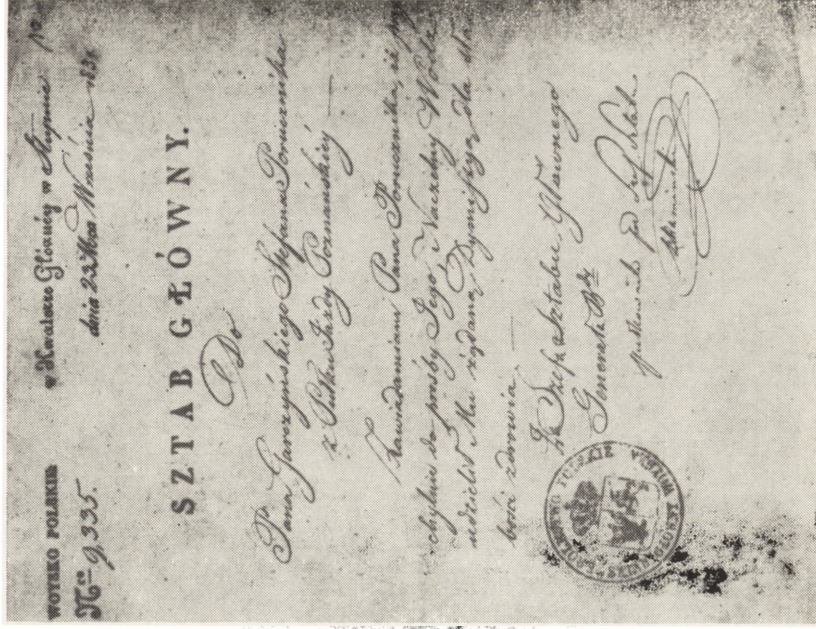 WOYSKO POLSKIE
w Kwaterze Główney w Słupnie
Nro 9,335.
dnia 23 Mca Września 183
SZTAB GŁÓWNY.
Do
Pana Garczyńskiego Stefana Porucznika
z Pułku Jazdy Poznańskiey
Zawiadamiam Pana Porucznika, iż
chylaiąc do prośby Jego Naczelny Wódz
udzielił Mu żądaną Dymissyą dla sła-
bości zdrowia. —
Za Szefa Sztabu Głównego
Generała
pułkownik
KROLESTWO POLSKIE